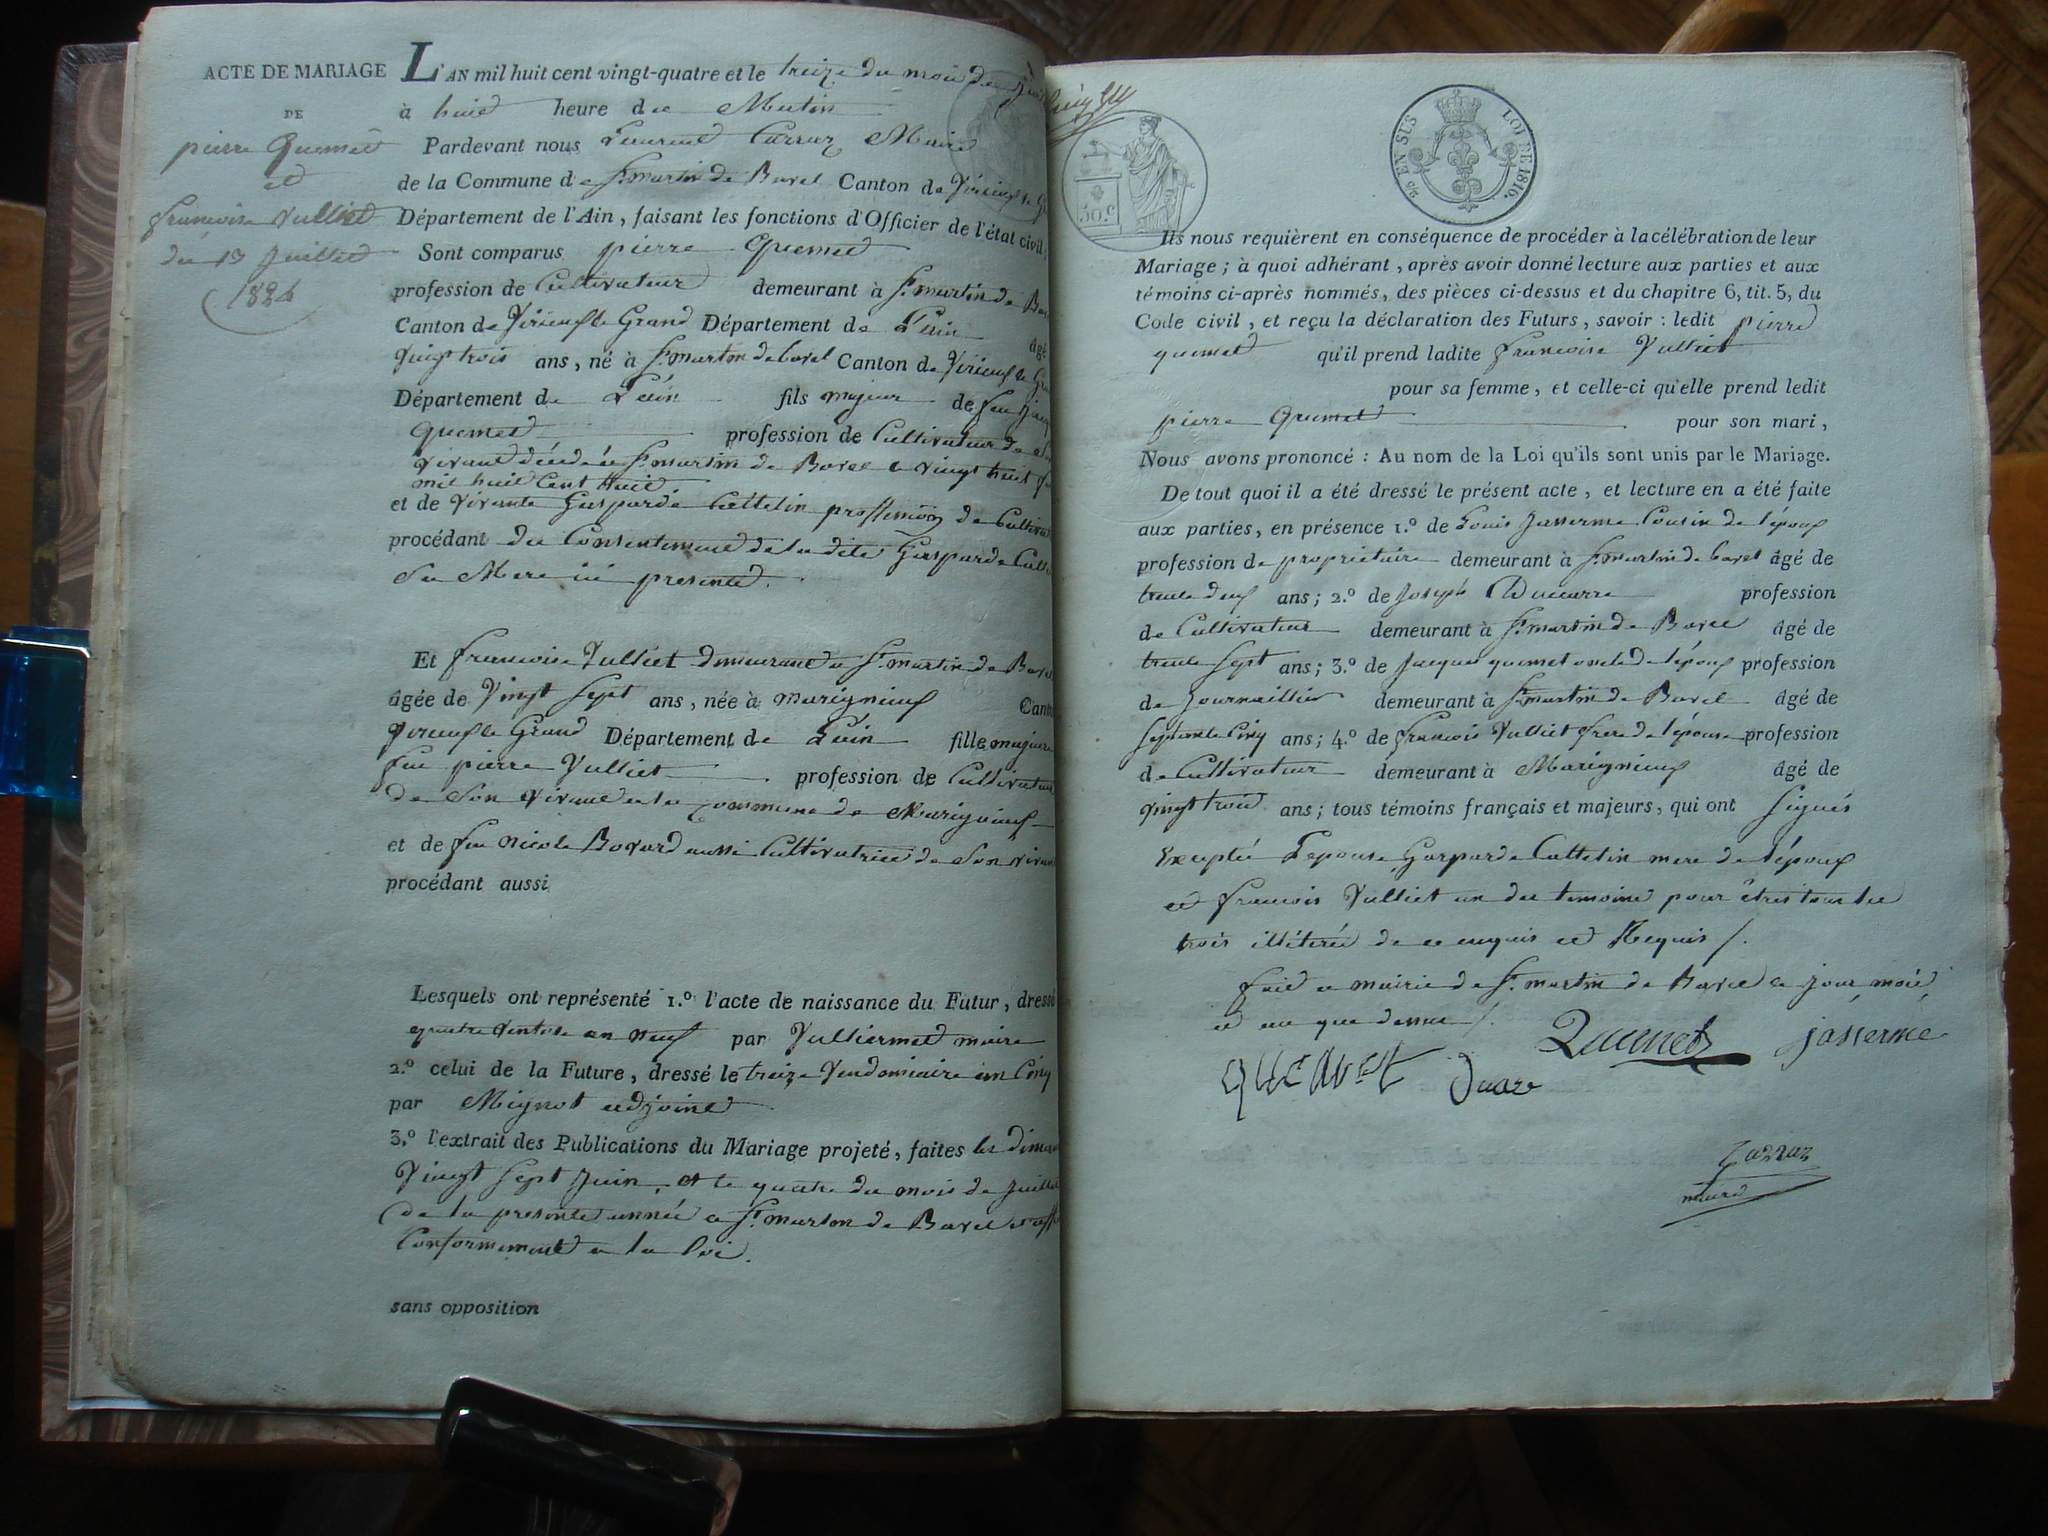 ACTE DE MARIAGE
DE
pierre Quemet
et
francoise Vulliet
du 13 Juillet
1824
L'AN mil huit cent vingt-quatre et le treize du mois de
à huit heure du Matin
Pardevant nous Laurent Carraz Maire
de la Commune de St martin de Bavel Canton de Virieux le
Département de l'Ain, faisant les fonctions d'Officier de l'état civil,
Sont comparus pierre Quemet
profession de Cultivateur demeurant à St martin de
Canton de Virieux le Grand Département de L'ain âgé
Vingt trois ans, né à St martin de bavel Canton de Virieux le
Département de L'ain fils majeur de feu
Quemet profession de Cultivateur de
vivant décédé a St martin de Bavel le vingt huit
mil huit Cent huit
et de vivante Gasparde Cattelin proffession de
procédant du Consentement de la dite Gasparde
Sa Mere ici presente.
Et francoise Vulliet demeurant a St martin de Bavel
âgée de Vingt Sept ans, née à marignieux
Virieux le Grand Département de L'ain fille majeure
feu pierre Vulliet profession de Cultivateur
de Son vivant a la Commune de Marignieux
et de feu nicole Bovard aussi Cultivatrice de Son
procédant aussi
Lesquels ont représenté 1.º l'acte de naissance du Futur, dressé
quatre Ventose an neuf par Vulliermet maire
2.º celui de la Future, dressé le treize Vendemiaire an Cinq
par Mignot adjoint
3.º l'extrait des Publications du Mariage projeté, faites les
Vingt Sept Juin, et le quatre du mois de Juillet
de la presente année a St martin de Bavel et
Conformement a la loi.
sans opposition
30.C
EN SUS LOI DE 1816.
Ils nous requièrent en conséquence de procéder à la célébration de leur
Mariage; à quoi adhérant, après avoir donné lecture aux parties et aux
témoins ci-après nommés, des pièces ci-dessus et du chapitre 6, tit. 5, du
Code civil, et reçu la déclaration des Futurs, savoir: ledit pierre
quemet qu'il prend ladite francoise Vulliet
pour sa femme, et celle-ci qu'elle prend ledit
pierre Quemet pour son mari,
Nous avons prononcé: Au nom de la Loi qu'ils sont unis par le Mariage.
De tout quoi il a été dressé le présent acte, et lecture en a été faite
aux parties, en présence 1.º de Louis Jasserme Cousin de l'époux
profession de propriétaire demeurant à St martin de bavel âgé de
trente deux ans; 2.º de Joseph profession
de Cultivateur demeurant à St martin de Bavel âgé de
trente Sept ans; 3.º de Jacques quemet oncle de l'époux profession
de Journaillier demeurant à St martin de Bavel âgé de
Septante Cinq ans; 4.º de francois Vulliet frere de l'épouse profession
de Cultivateur demeurant à Marignieux âgé de
vingt trois ans; tous témoins français et majeurs, qui ont Signés
Excepté L'epouse Gasparde Cattelin mere de l'époux
et francois Vulliet un des temoins pour être tous les
trois illétérés de ce enquis et Requis /.
fait a mairie de St martin de Bavel ce jour mois
et an que dessus /.
Quemet jasserme
QUEMET
Carraz
maire